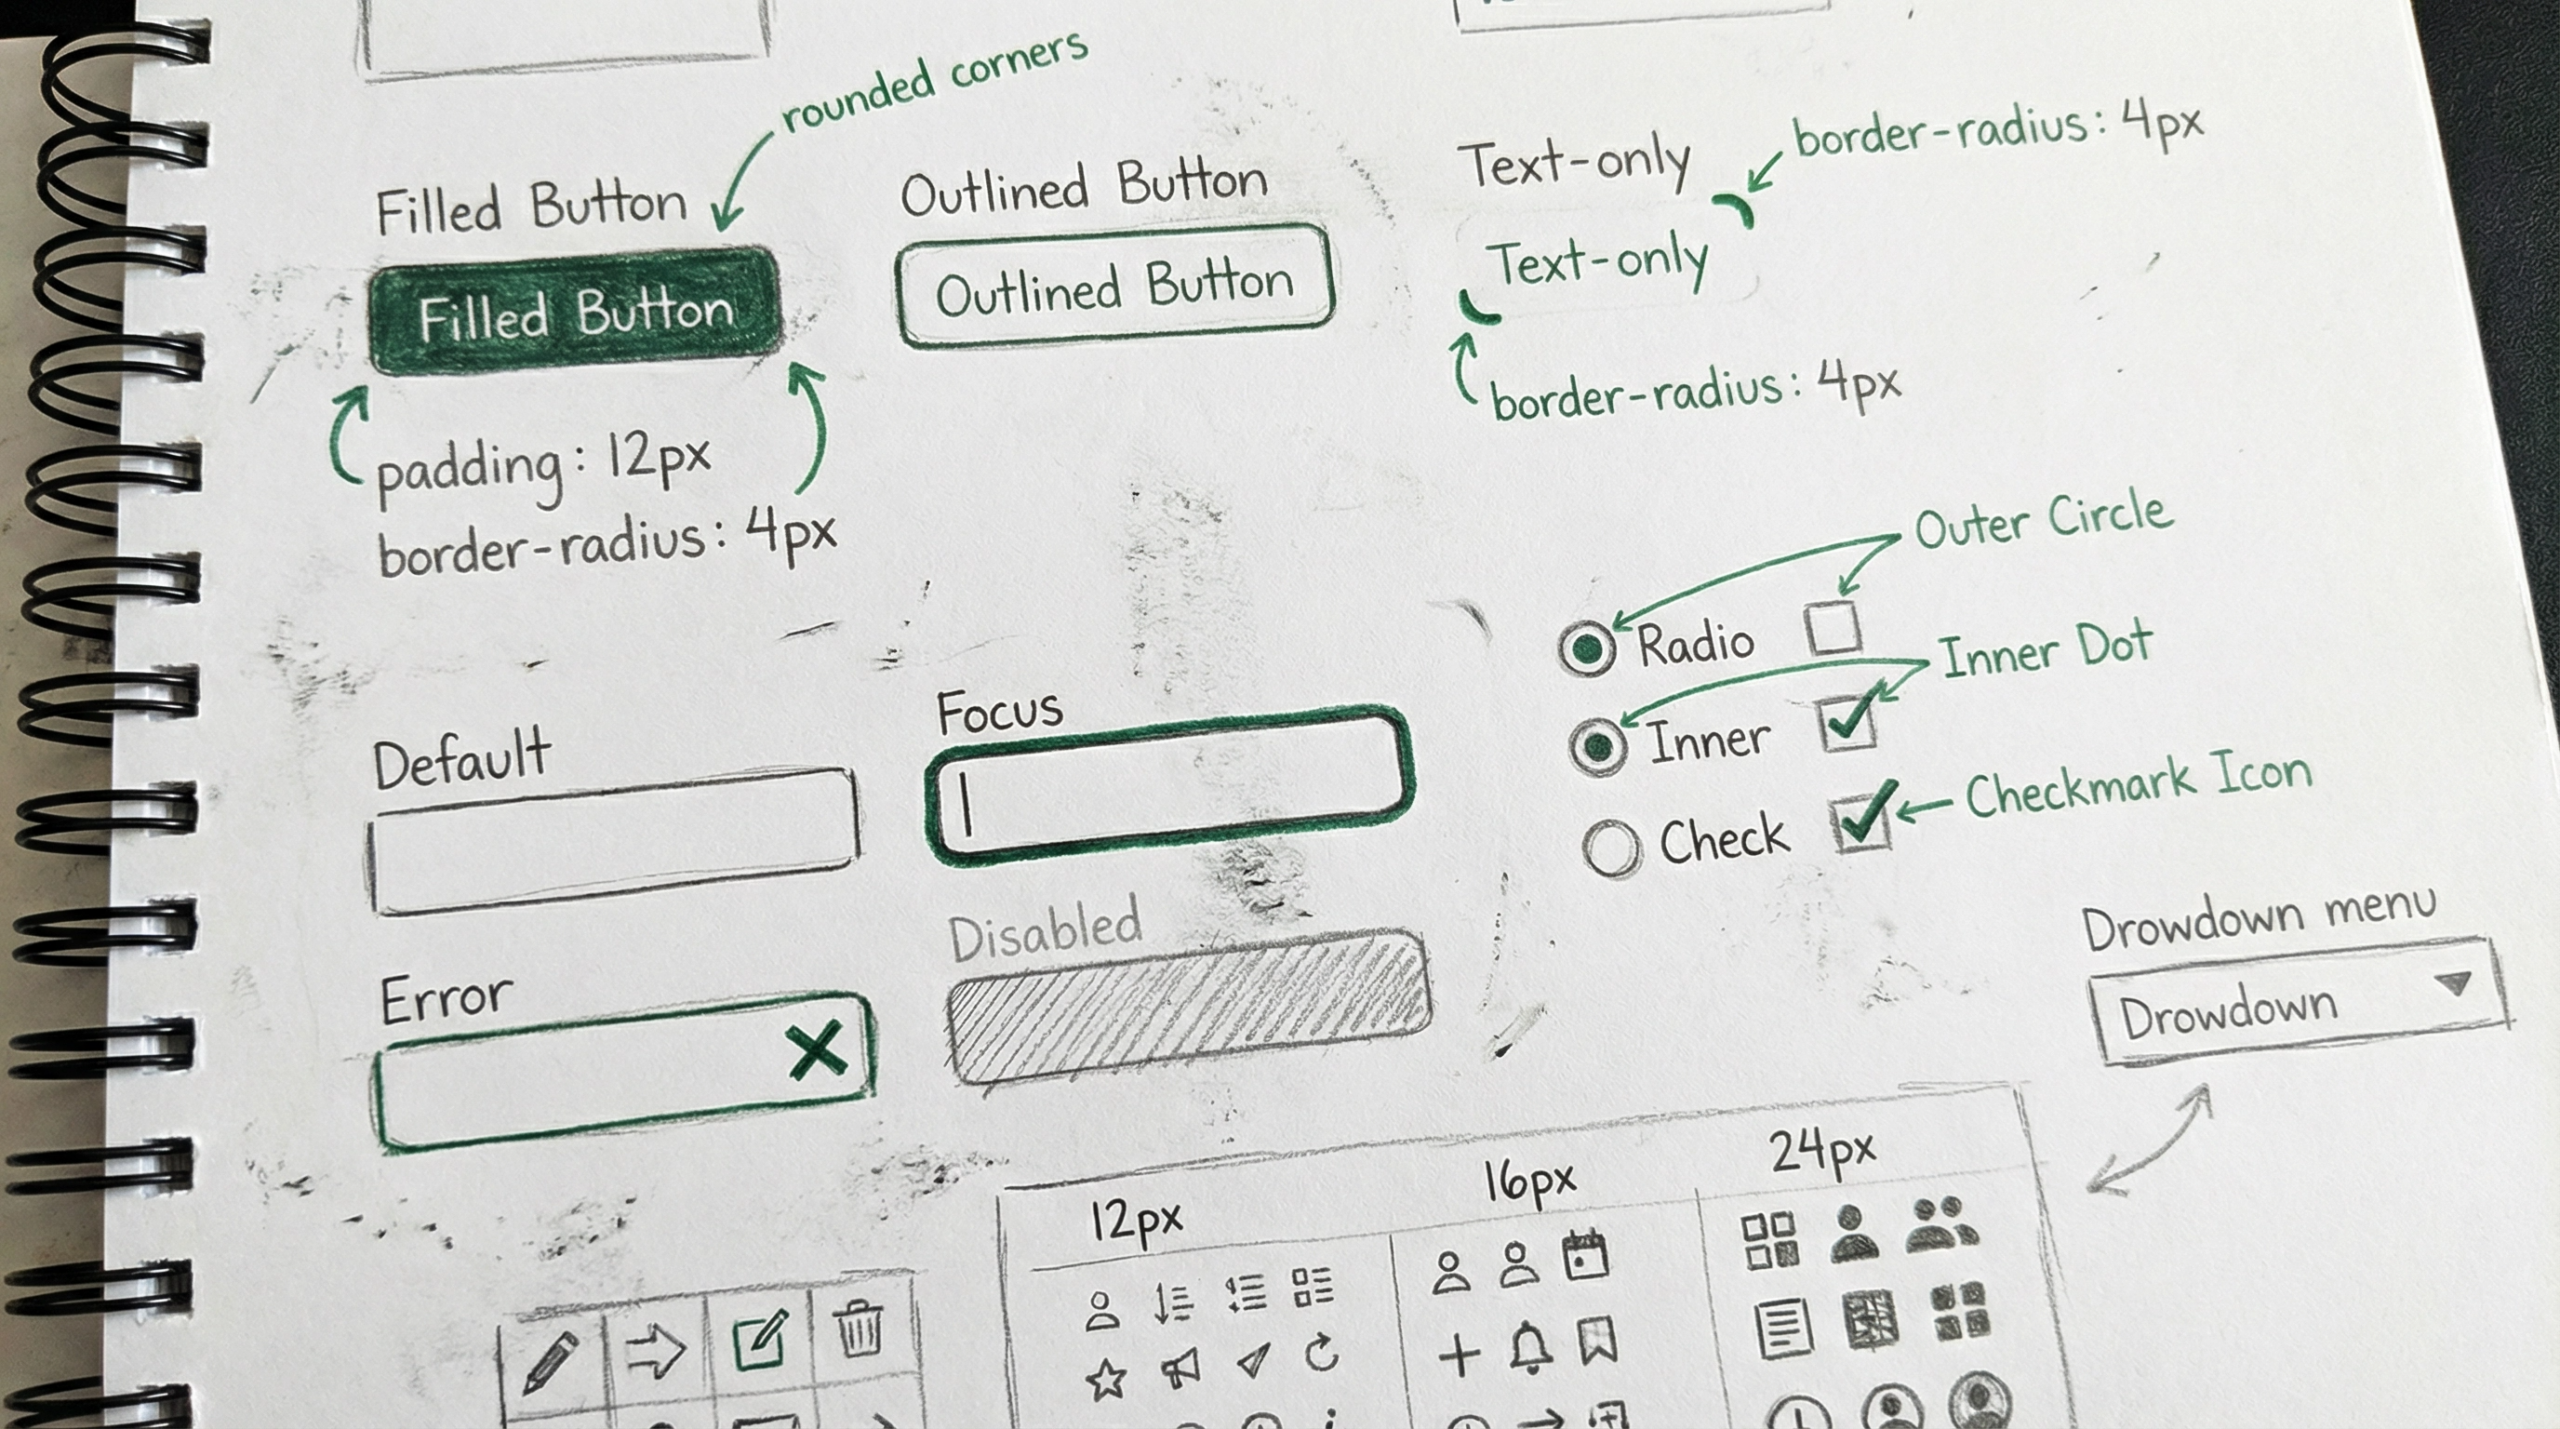 rounded corners
Filled Button
Filled Button
padding: 12px
border-radius: 4px
Outlined Button
Outlined Button
Text-only
border-radius: 4px
Text-only
border-radius: 4px
Default
Focus
Error
Disabled
Outer Circle
Radio
Inner Dot
Inner
Checkmark Icon
Check
Drowdown menu
Drowdown
12px
16px
24px